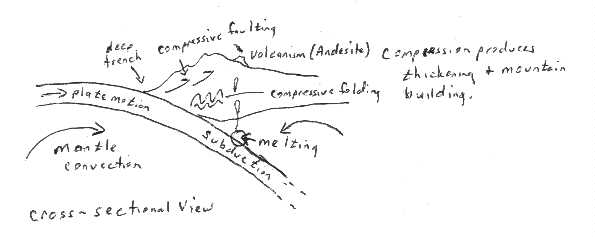 deep
trench
compressive faulting
Volcanism (Andesite)
Compression produces
thickening & mountain
building.
plate motion
compressive folding
Subduction
melting
mantle
convection
cross-sectional View